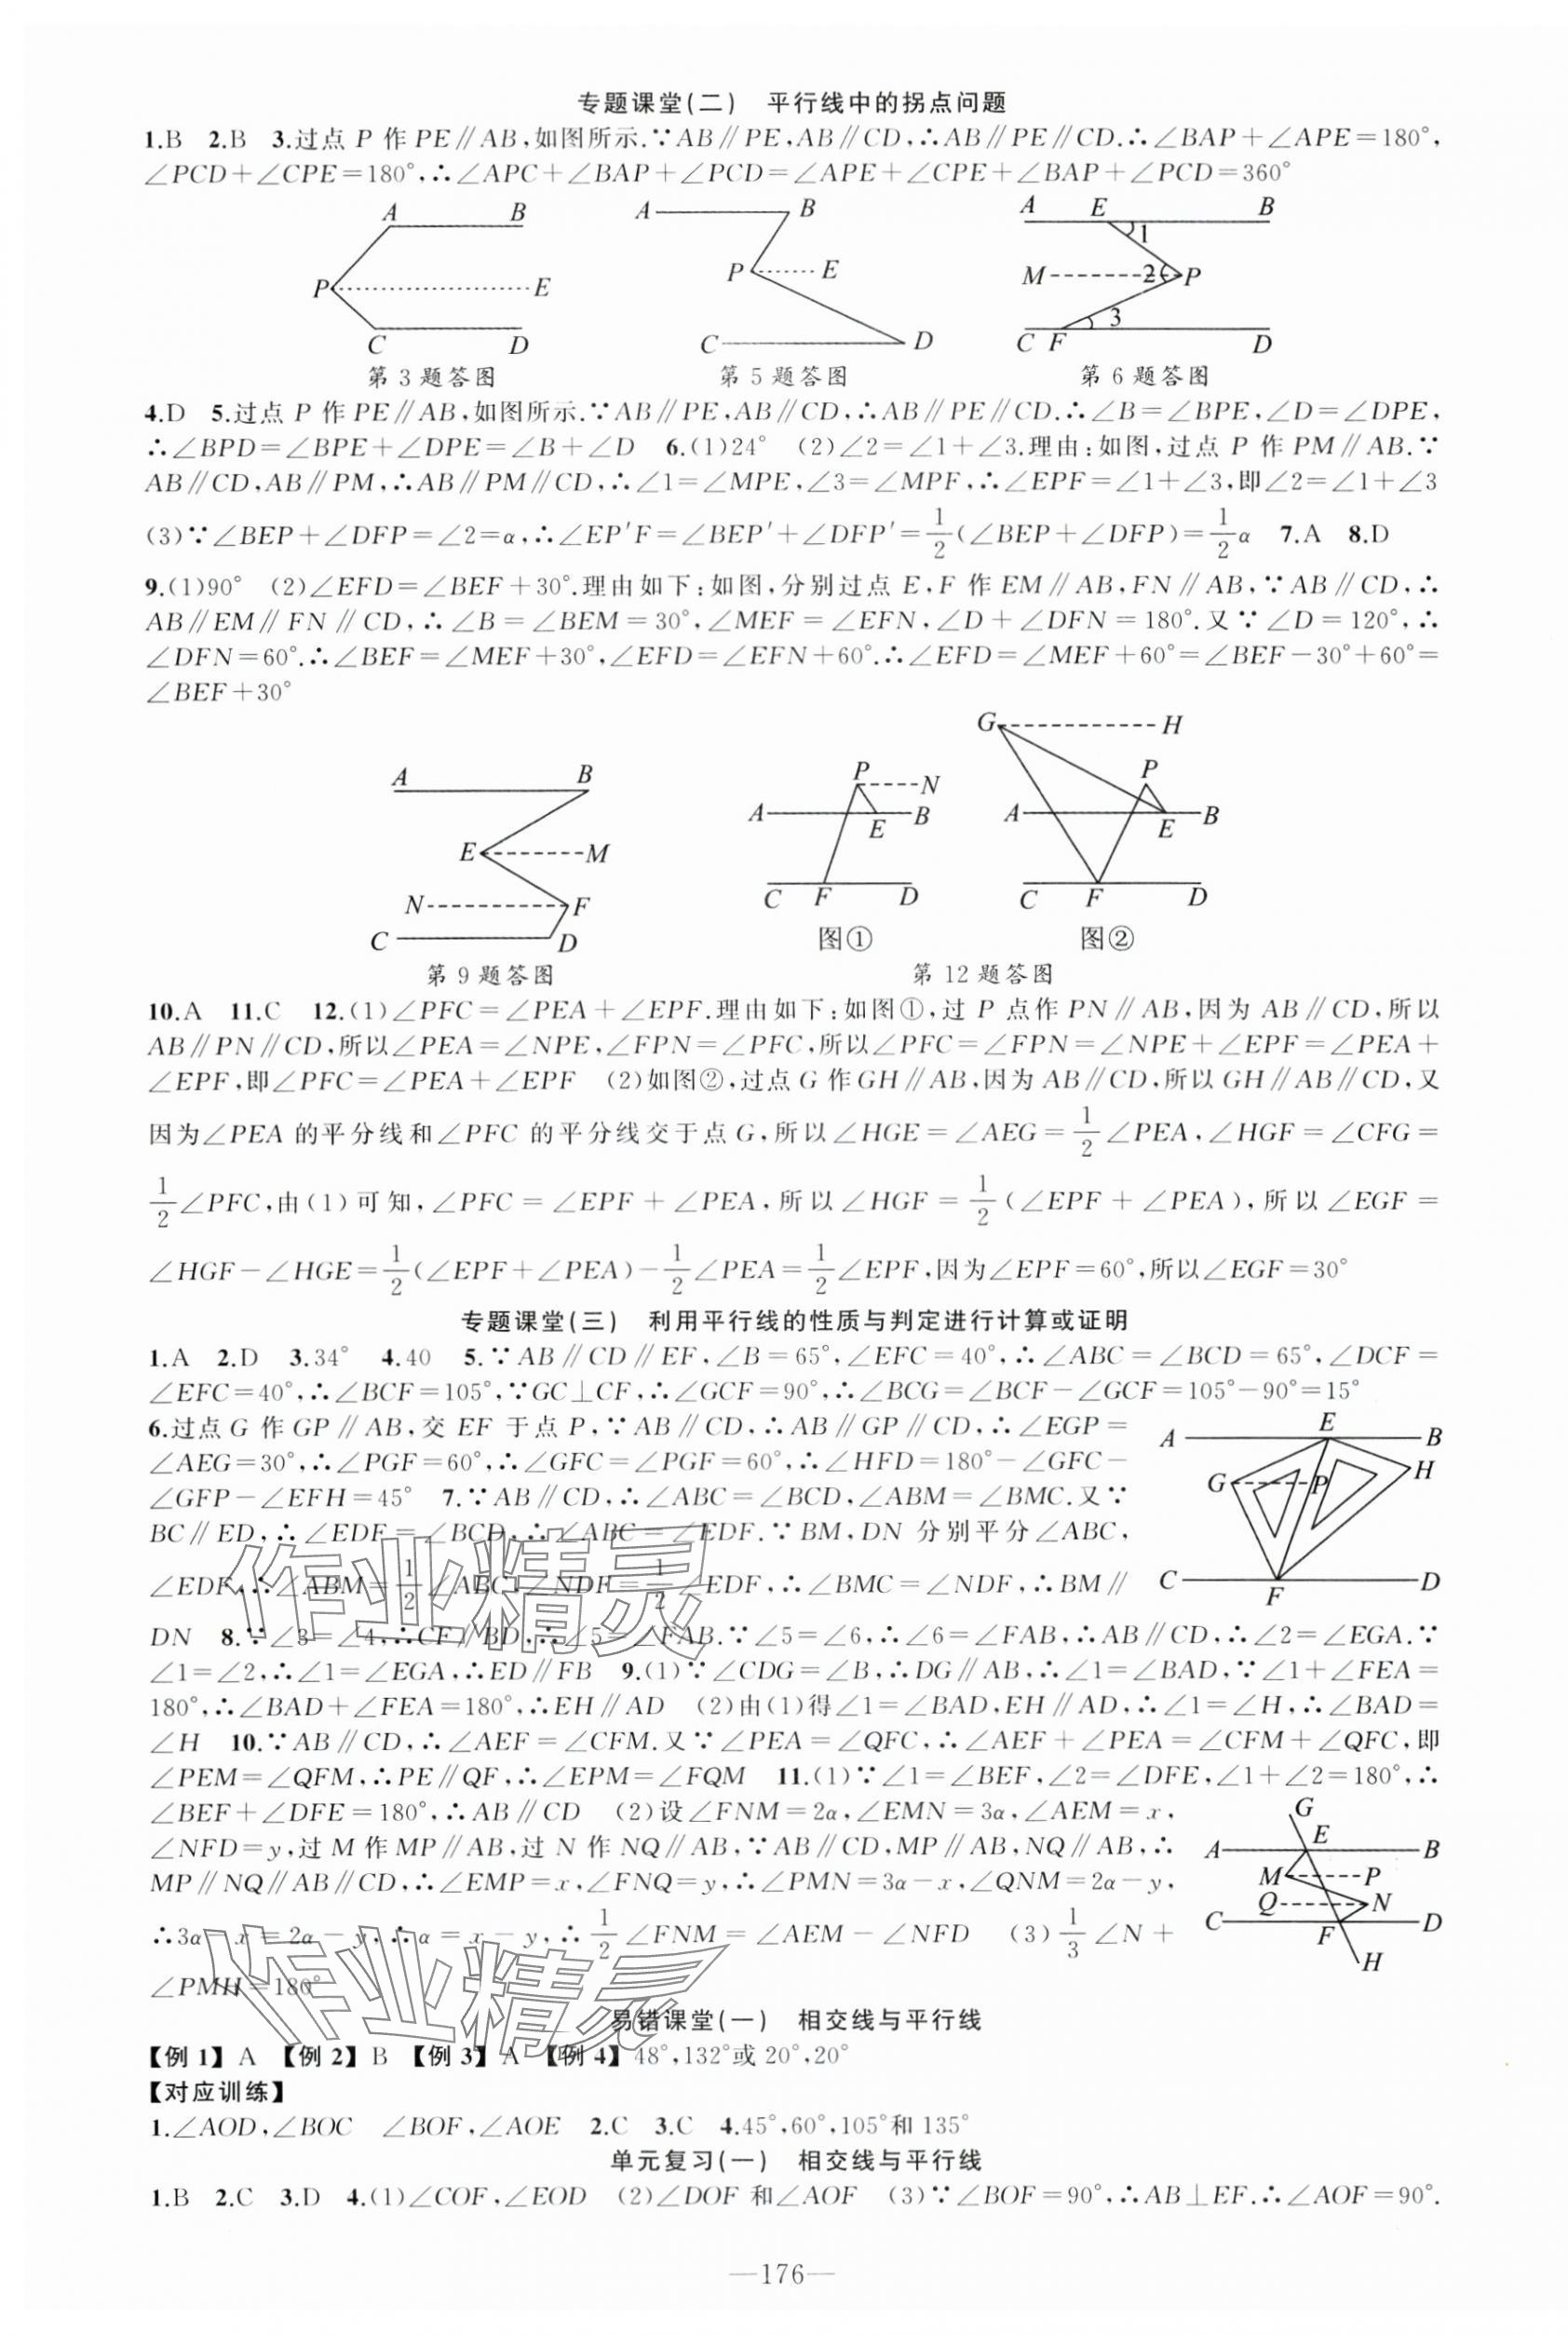 专题课堂(二) 平行线中的拐点问题
1.B 2.B 3.过点 P 作 PE∥AB,如图所示.∵AB∥PE,AB∥CD,∴AB∥PE∥CD.∴∠BAP+∠APE=180°,
∠PCD+∠CPE=180°,∴∠APC+∠BAP+∠PCD=∠APE+∠CPE+∠BAP+∠PCD=360°
A B P E C D
A B P E C D
A E B 1 M 2 P 3 C F D
第 3 题答图 第 5 题答图 第 6 题答图
4.D 5.过点 P 作 PE∥AB,如图所示.∵AB∥PE,AB∥CD,∴AB∥PE∥CD.∴∠B=∠BPE,∠D=∠DPE,
∴∠BPD=∠BPE+∠DPE=∠B+∠D 6.(1)24° (2)∠2=∠1+∠3.理由:如图,过点 P 作 PM∥AB.∵
AB∥CD,AB∥PM,∴AB∥PM∥CD,∴∠1=∠MPE,∠3=∠MPF,∴∠EPF=∠1+∠3,即∠2=∠1+∠3
(3)∵∠BEP+∠DFP=∠2=α,∴∠EP′F=∠BEP′+∠DFP′=1/2(∠BEP+∠DFP)=1/2α 7.A 8.D
9.(1)90° (2)∠EFD=∠BEF+30°.理由如下:如图,分别过点 E,F 作 EM∥AB,FN∥AB,∵AB∥CD,∴
AB∥EM∥FN∥CD,∴∠B=∠BEM=30°,∠MEF=∠EFN,∠D+∠DFN=180°.又∵∠D=120°,∴
∠DFN=60°.∴∠BEF=∠MEF+30°,∠EFD=∠EFN+60°.∴∠EFD=∠MEF+60°=∠BEF-30°+60°=
∠BEF+30°
A B E M N F C D
P N A E B C F D
G H P A E B C F D
图① 图②
第 9 题答图 第 12 题答图
10.A 11.C 12.(1)∠PFC=∠PEA+∠EPF.理由如下:如图①,过 P 点作 PN∥AB,因为 AB∥CD,所以
AB∥PN∥CD,所以∠PEA=∠NPE,∠FPN=∠PFC,所以∠PFC=∠FPN=∠NPE+∠EPF=∠PEA+
∠EPF,即∠PFC=∠PEA+∠EPF (2)如图②,过点 G 作GH∥AB,因为 AB∥CD,所以 GH∥AB∥CD,又
因为∠PEA 的平分线和∠PFC 的平分线交于点 G,所以∠HGE=∠AEG=1/2∠PEA,∠HGF=∠CFG=
1/2∠PFC,由(1)可知,∠PFC=∠EPF+∠PEA,所以∠HGF=1/2(∠EPF+∠PEA),所以∠EGF=
∠HGF-∠HGE=1/2(∠EPF+∠PEA)-1/2∠PEA=1/2∠EPF,因为∠EPF=60°,所以∠EGF=30°
专题课堂(三) 利用平行线的性质与判定进行计算或证明
1.A 2.D 3.34° 4.40 5.∵AB∥CD∥EF,∠B=65°,∠EFC=40°,∴∠ABC=∠BCD=65°,∠DCF=
∠EFC=40°,∴∠BCF=105°,∵GC⊥CF,∴∠GCF=90°,∴∠BCG=∠BCF-∠GCF=105°-90°=15°
6.过点 G 作 GP∥AB,交 EF 于点 P,∵AB∥CD,∴AB∥GP∥CD,∴∠EGP=
∠AEG=30°,∴∠PGF=60°,∴∠GFC=∠PGF=60°,∴∠HFD=180°-∠GFC-
∠GFP-∠EFH=45° 7.∵AB∥CD,∴∠ABC=∠BCD,∠ABM=∠BMC.又∵
BC∥ED,∴∠EDF=∠BCD,∴∠ABC=∠EDF.∵BM,DN 分别平分∠ABC,
∠EDF,∴∠ABM=1/2∠ABC,∠NDF=1/2∠EDF,∴∠BMC=∠NDF,∴BM∥
A E B G P H C F D
DN 8.∵∠3=∠4,∴CF∥BD,∴∠5=∠FAB.∵∠5=∠6,∴∠6=∠FAB,∴AB∥CD,∴∠2=∠EGA.∵
∠1=∠2,∴∠1=∠EGA,∴ED∥FB 9.(1)∵∠CDG=∠B,∴DG∥AB,∴∠1=∠BAD,∵∠1+∠FEA=
180°,∴∠BAD+∠FEA=180°,∴EH∥AD (2)由(1)得∠1=∠BAD,EH∥AD,∴∠1=∠H,∴∠BAD=
∠H 10.∵AB∥CD,∴∠AEF=∠CFM.又∵∠PEA=∠QFC,∴∠AEF+∠PEA=∠CFM+∠QFC,即
∠PEM=∠QFM,∴PE∥QF,∴∠EPM=∠FQM 11.(1)∵∠1=∠BEF,∠2=∠DFE,∠1+∠2=180°,∴
∠BEF+∠DFE=180°,∴AB∥CD (2)设∠FNM=2α,∠EMN=3α,∠AEM=x,
∠NFD=y,过 M 作 MP∥AB,过 N 作 NQ∥AB,∵AB∥CD,MP∥AB,NQ∥AB,∴
MP∥NQ∥AB∥CD,∴∠EMP=x,∠FNQ=y,∴∠PMN=3α-x,∠QNM=2α-y,
∴3α-x=2α-y,∴α=x-y,∴1/2∠FNM=∠AEM-∠NFD (3)1/3∠N+
∠PMH=180°
G A E B M P Q N C F D H
作业精灵
作业精灵
易错课堂(一) 相交线与平行线
【例1】A 【例2】B 【例3】A 【例4】48°,132°或 20°,20°
【对应训练】
1.∠AOD,∠BOC ∠BOF,∠AOE 2.C 3.C 4.45°,60°,105°和 135°
单元复习(一) 相交线与平行线
1.B 2.C 3.D 4.(1)∠COF,∠EOD (2)∠DOF 和∠AOF (3)∵∠BOF=90°,∴AB⊥EF.∴∠AOF=90°.
—176—